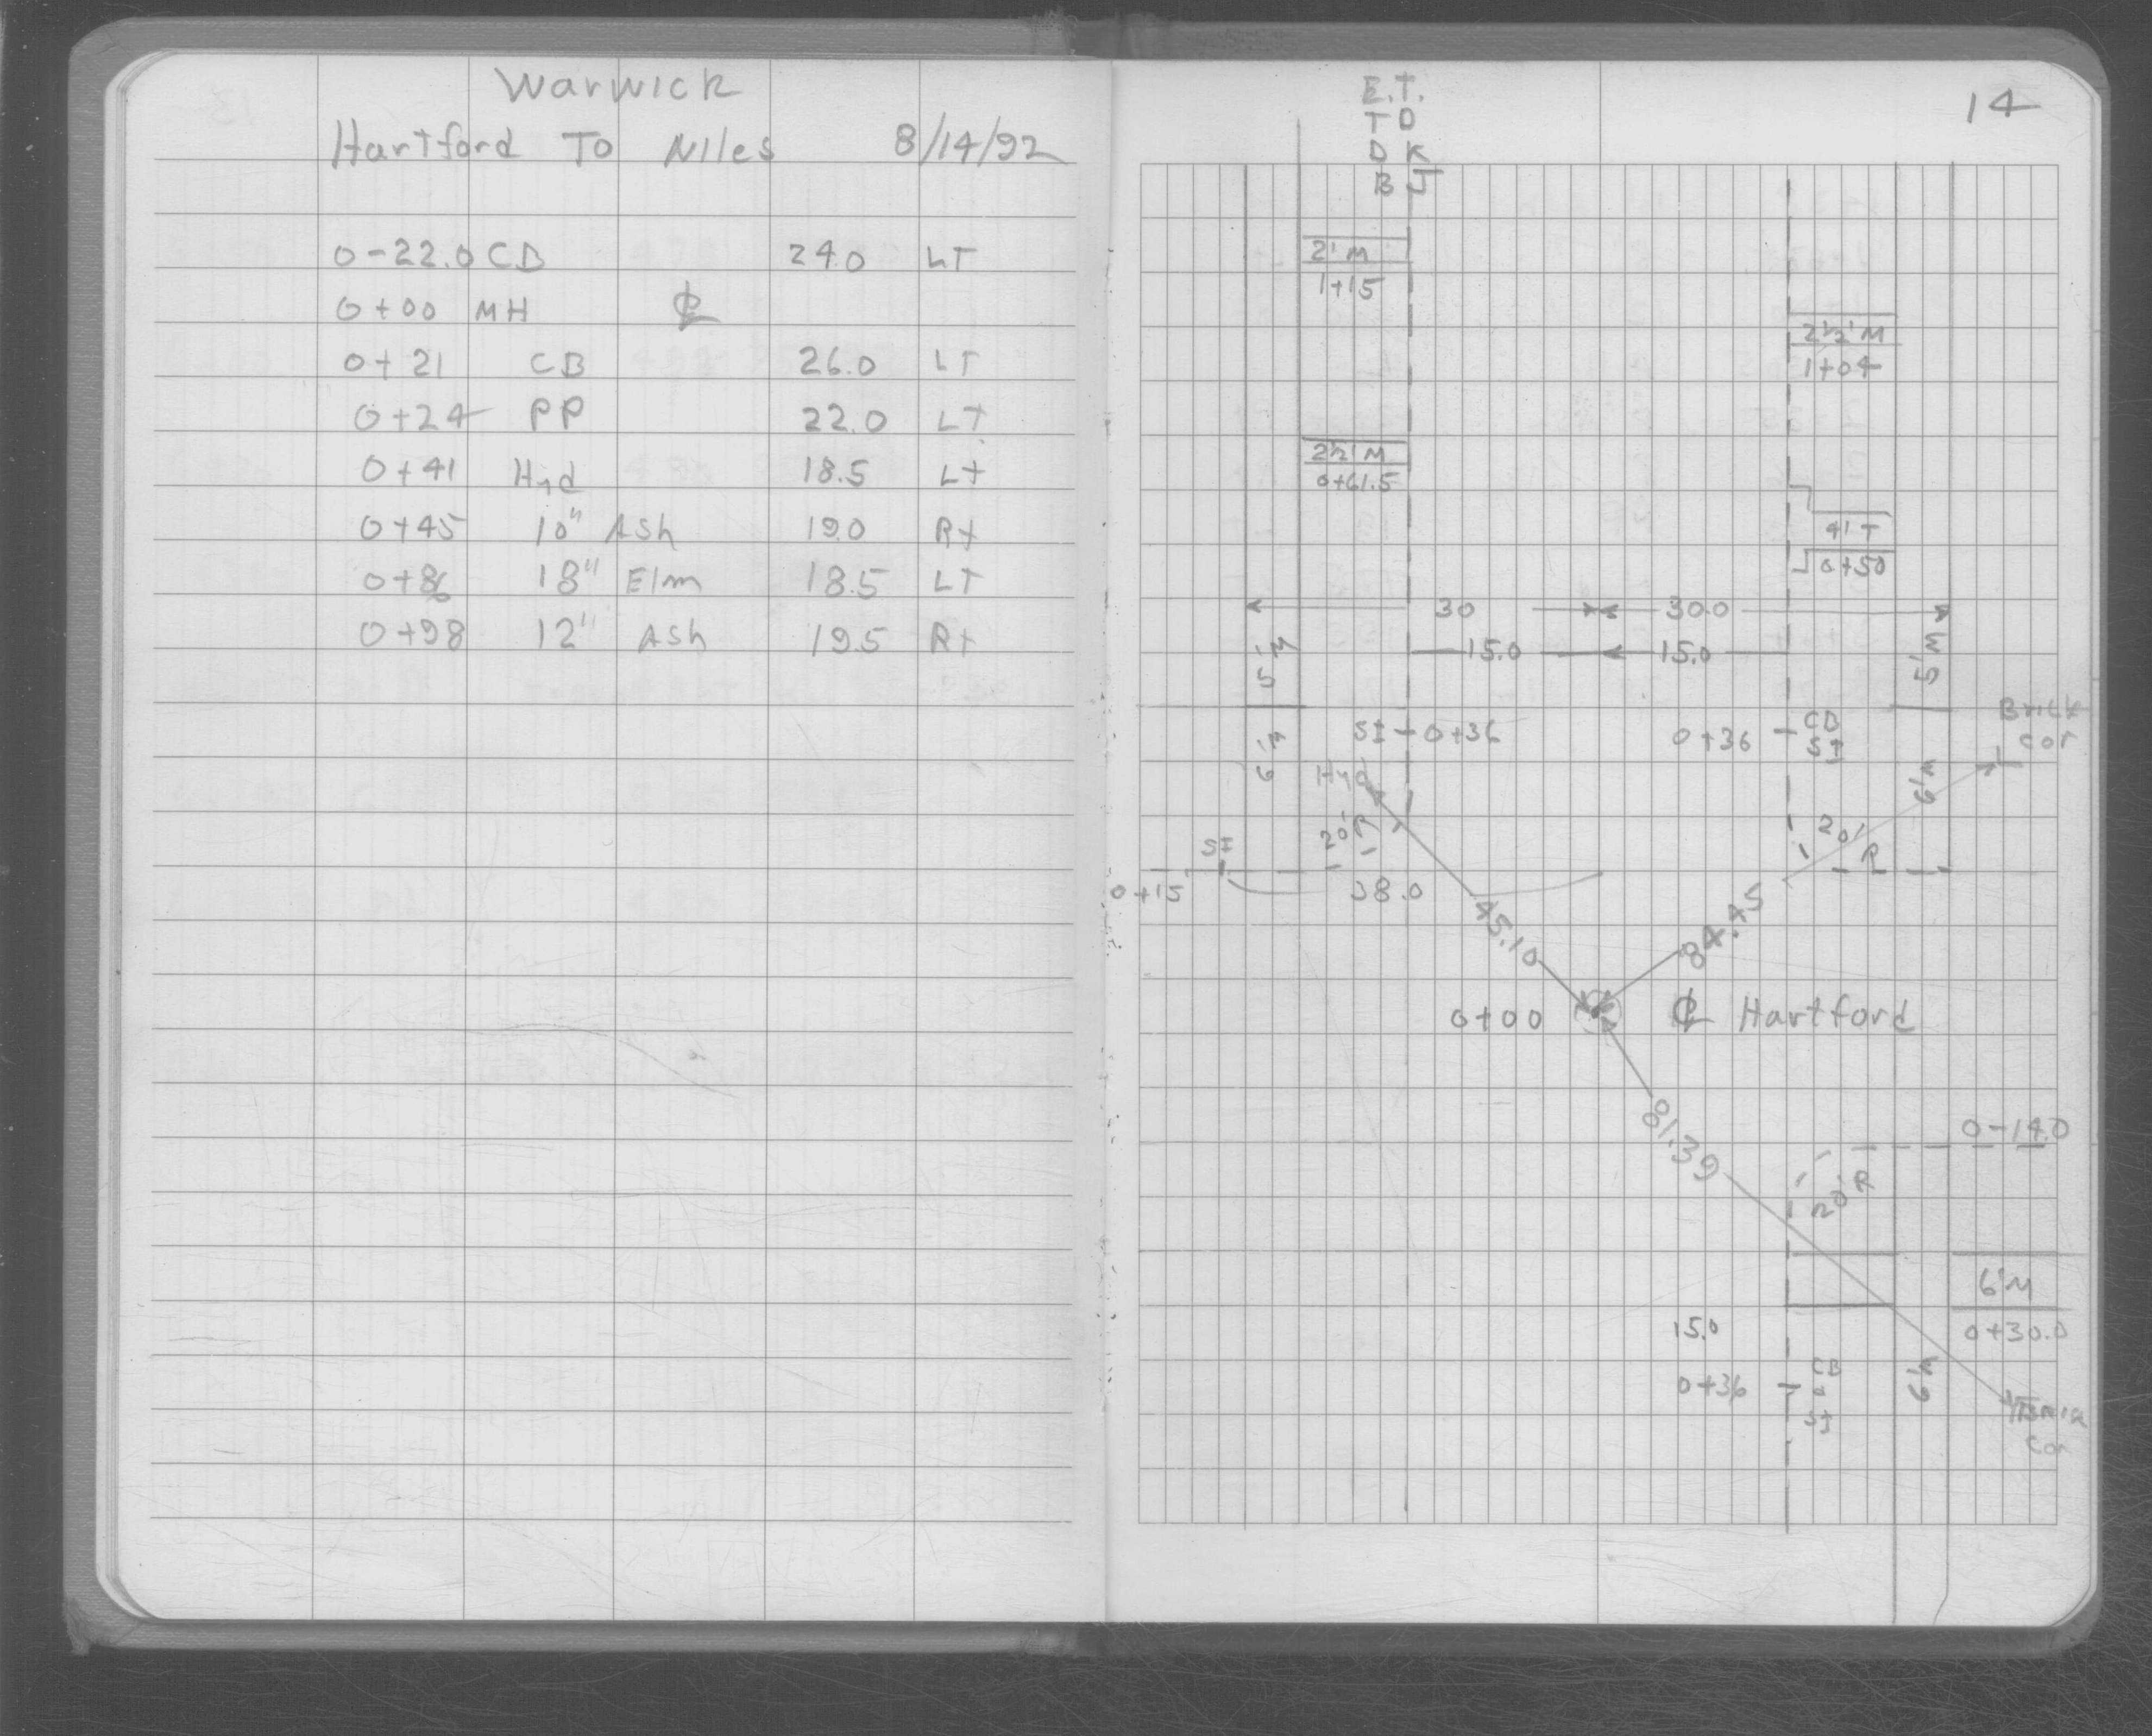 Warwick
Hartford To Niles 8/14/92
0-22.0 CB 24.0 LT
0+00 MH ℄
0+21 CB 26.0 LT
0+24 PP 22.0 LT
0+41 Hyd 18.5 Lt
0+45 10" Ash 19.0 Rt
0+86 18" Elm 18.5 LT
0+98 12" Ash 19.5 Rt
14
E.T.
T D
D K
B J
2' M
1+15
2½' M
1+04
2½' M
0+61.5
4' T
0+50
30 30.0
15.0 15.0
5'M 5'M
Brick
cor
SI 0+36 0+36 CB
SI
6'M 6'M
Hyd
20'R 20'R
SI
0+15 38.0
45.10 84.45
0+00 ℄ Hartford
81.39
0-14.0
20'R
6'M
0+30.0
15.0
0+36 CB
SI
6'M
Brick
Cor